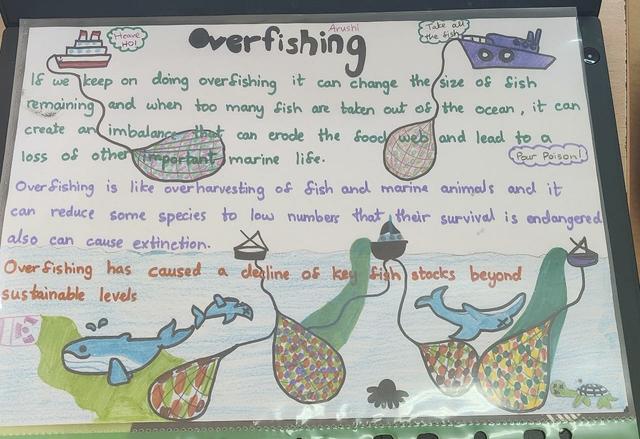 Arushi
Heave
HO!
Overfishing
Take all
the fish
If we keep on doing overfishing it can change the size of fish
remaining and when too many fish are taken out of the ocean, it can
create an imbalance that can erode the food web and lead to a
loss of other important marine life.
Pour Poison!
Overfishing is like overharvesting of fish and marine animals and it
can reduce some species to low numbers that their survival is endangered
also can cause extinction.
Overfishing has caused a decline of key fish stocks beyond
sustainable levels